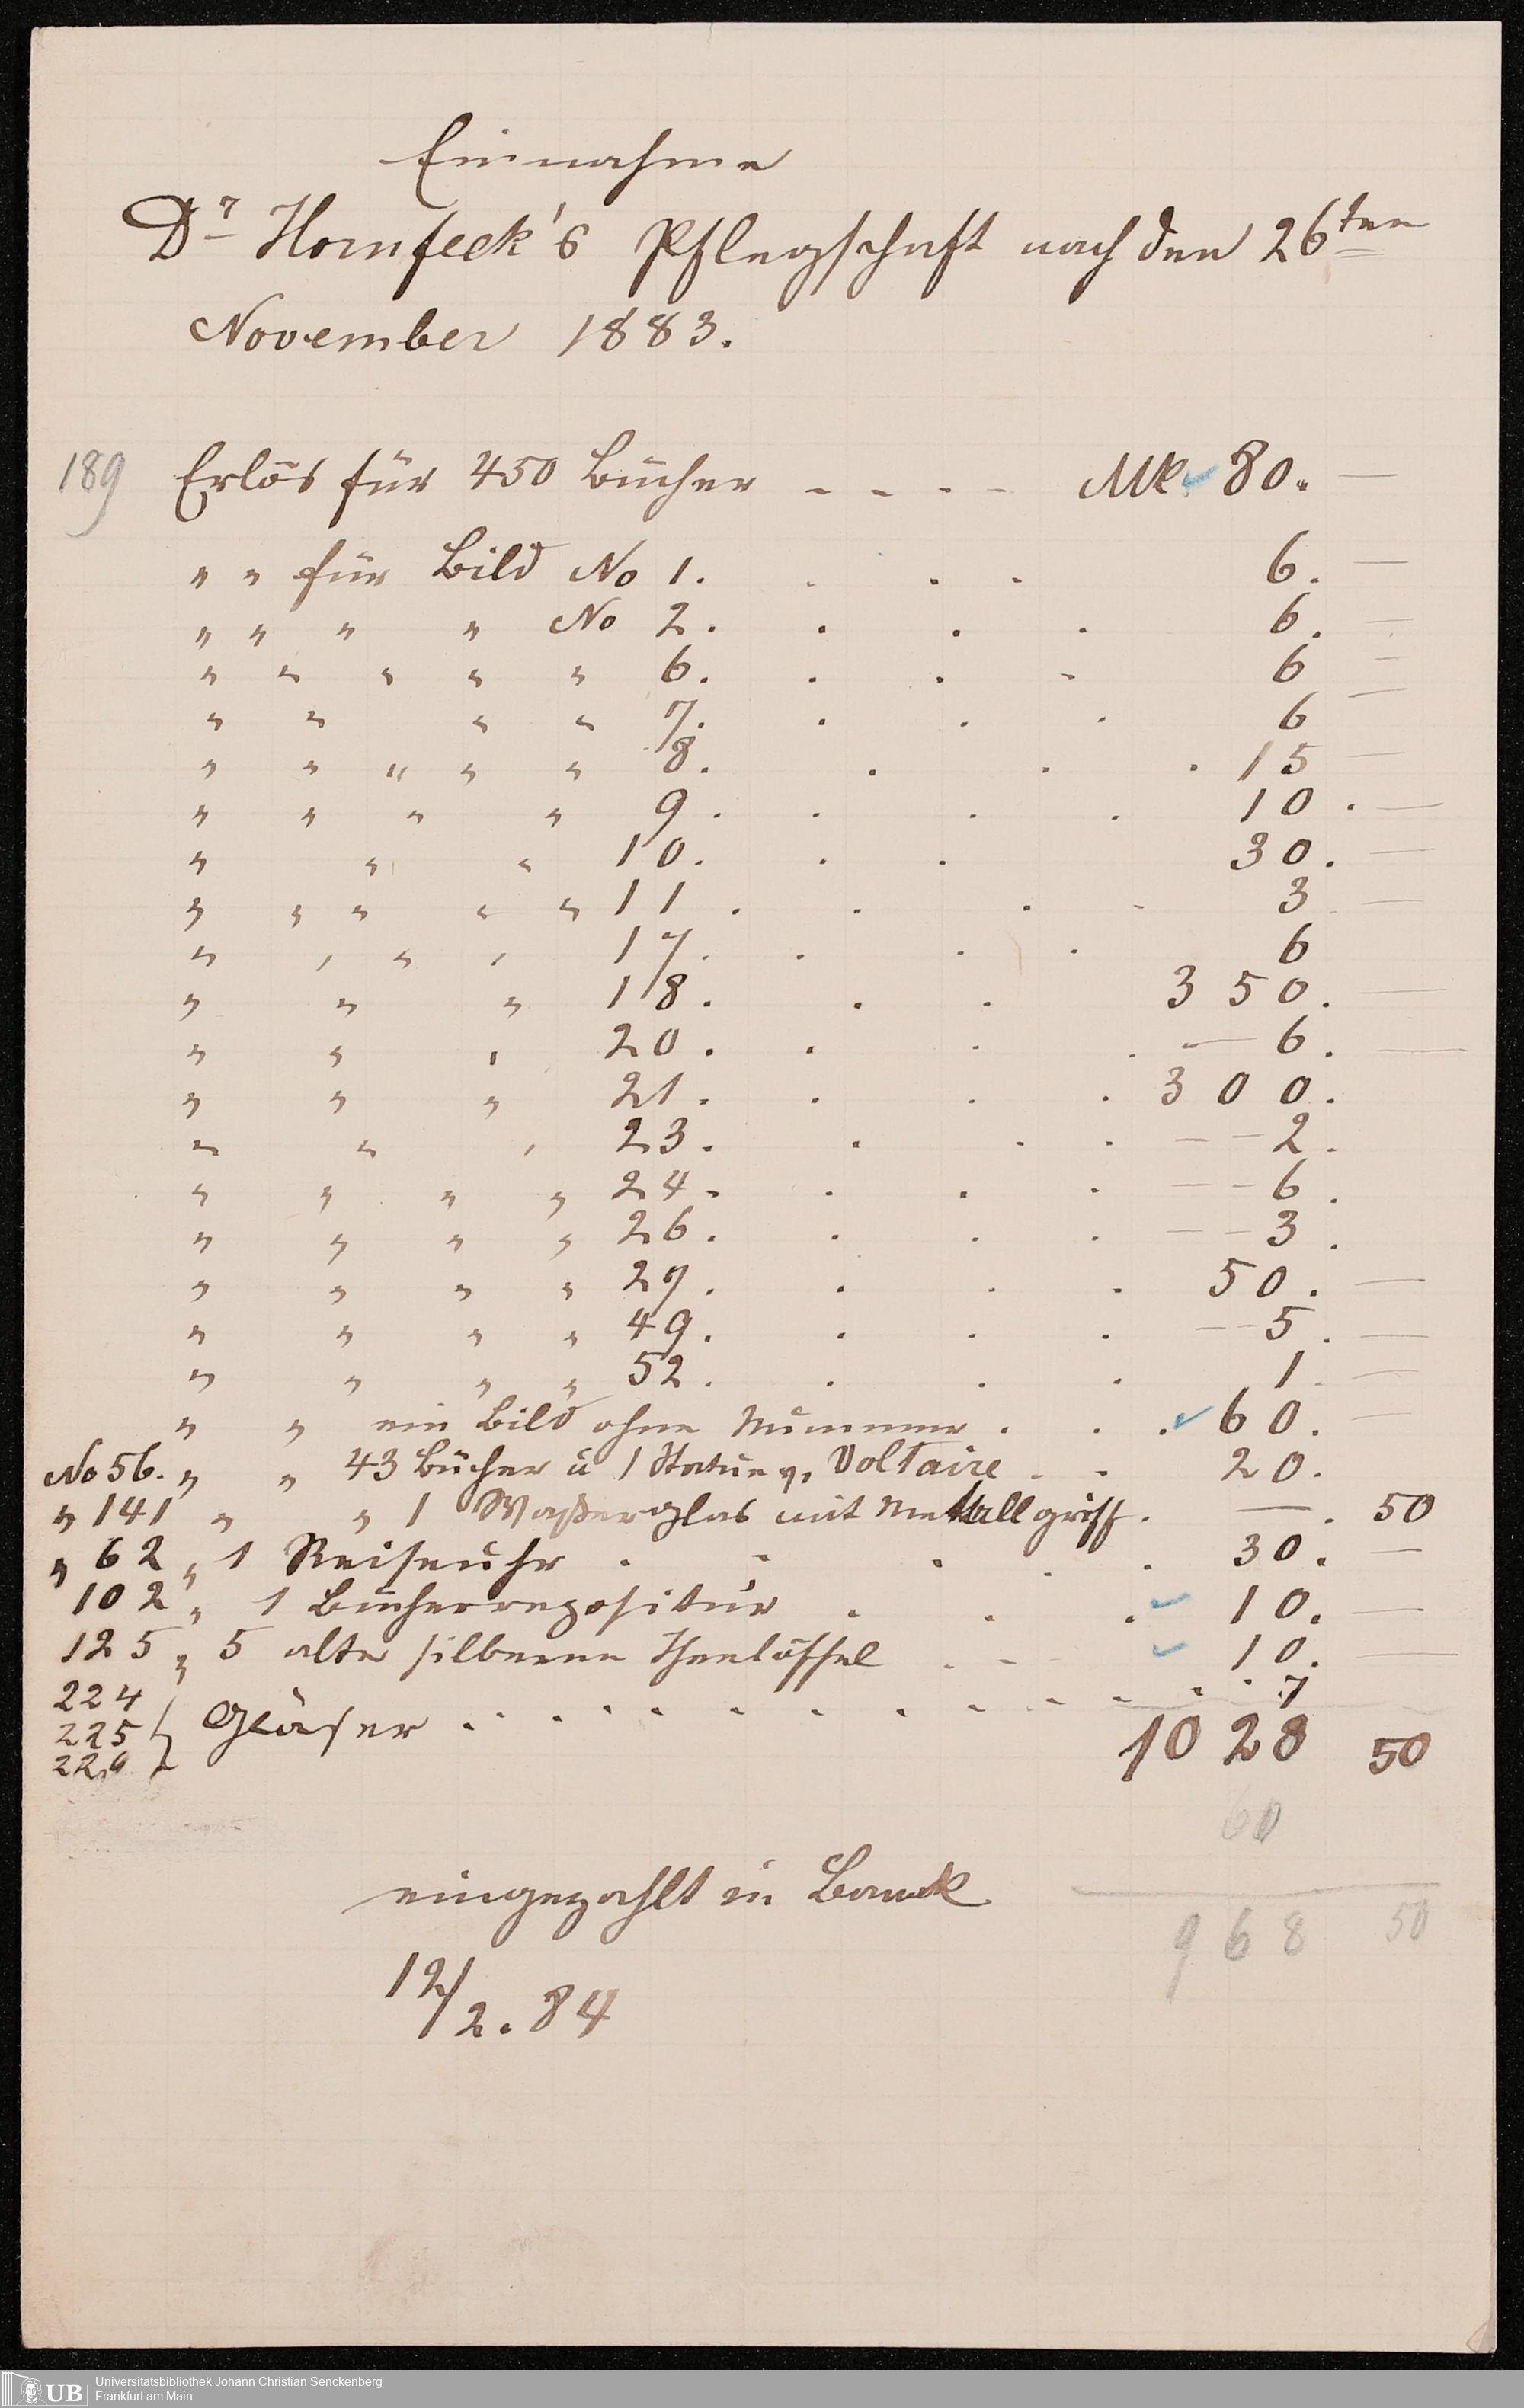 Einnahme
Dr Hornfeck's Pflegschaft nach den 26ten
November 1883.
189 Erlös für 450 Bücher - - - - Mk 80. —
" " für Bild No 1. . . . 6. —
" " " " No 2. . . . 6. —
" " " " " 6. . . . 6 —
" " " " 7. . . . 6 —
" " " " " 8. . . . 15 —
" " " " 9. . . . 10. —
" " " 10. . . 30. —
" " " " " 11. . . . 3 —
" " " " 17. . . . 6
" " " 18. . . 350. —
" " " 20. . . . — 6. —
" " " 21. . . . 300.
" " " 23. . . . — — 2.
" " " " 24. . . . — — 6.
" " " " 26. . . . — — 3.
" " " " 27. . . . 50. —
" " " " 49. . . . — — 5. —
" " " " 52. . . . 1. —
" " ein Bild ohne Nummer . . . 60. —
No 56. " " 43 Bücher u 1 Statue v. Voltaire . . 20.
" 141 " " 1 Waßerglas mit Metallgriff. — . 50
" 62 " 1 Reiseuhr . . . . . 30. —
102 " 1 Bücherrepositur . . . 10. —
125 " 5 alte silberne Theelöffel . . 10. —
224
225 } Gläser . . . . . . . . . . . . 7
229
1028 50
60
eingezahlt in Bank
968 50
12/2. 84
UB Universitätsbibliothek Johann Christian Senckenberg
Frankfurt am Main